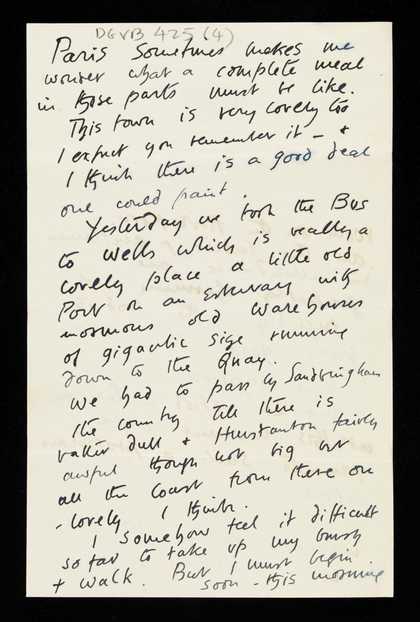 DGVB 425 (4)
Paris Sometimes makes me
wonder what a complete meal
in those parts must be like.
This town is very lovely too
I expect you remember it - &
I think there is a good deal
one could paint.
Yesterday we took the Bus
to Wells which is really a
lovely place a little old
Port on an estuary with
enormous old warehouses
of gigantic size running
down to the Quay.
We had to pass by Sandringham
The country till there is
rather dull & Hunstanton fairly
awful though not big but
all the Coast from there on
- lovely I think.
I somehow feel it difficult
so far to take up my brush
+ walk. But I must begin
soon - this morning